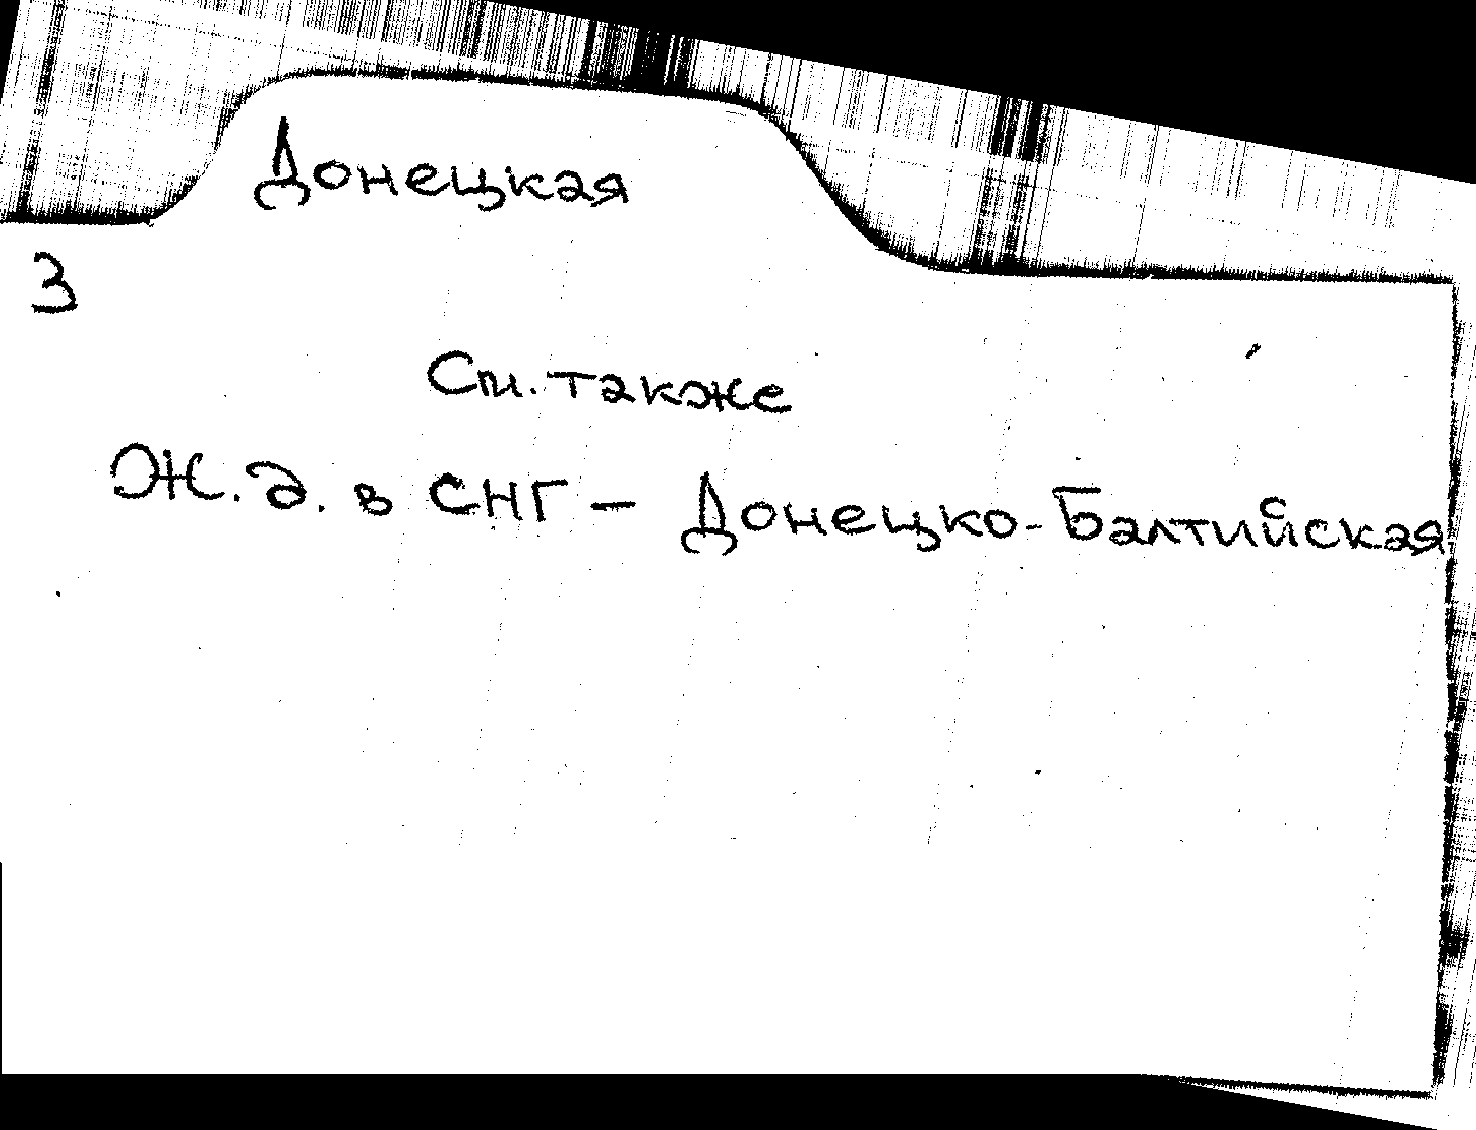 Донецкая
3
См. также
Ж.д. в СНГ – Донецко-Балтийская